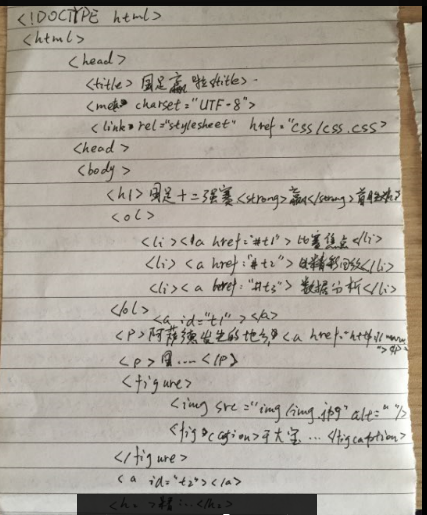 <!DOCTYPE html>
<html>
<head>
<title> 国足赢啦</title>
<meta charset="UTF-8">
<link rel="stylesheet" href="css/css.css>
<head>
<body>
<h1>国足十二强赛<strong>赢了</strong>
<ol>
<li><a href="#t1">比赛焦点</li>
<li><a href="#t2">精彩回放</li>
<li><a href="#t3">数据分析</li>
</ol>
<a id="t1"></a>
<p>阿萨德发生的地方<a href="http://www
">
<p>图...</p>
<figure>
<img src="img/img.jpg" alt=" "/>
<figcaption>于大宝...</figcaption>
</figure>
<a id="t2"></a>